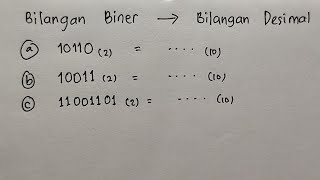 Bilangan Biner → Bilangan Desimal
(a) 10110 (2) = .... (10)
(b) 10011 (2) = .... (10)
(c) 11001101 (2) = .... (10)